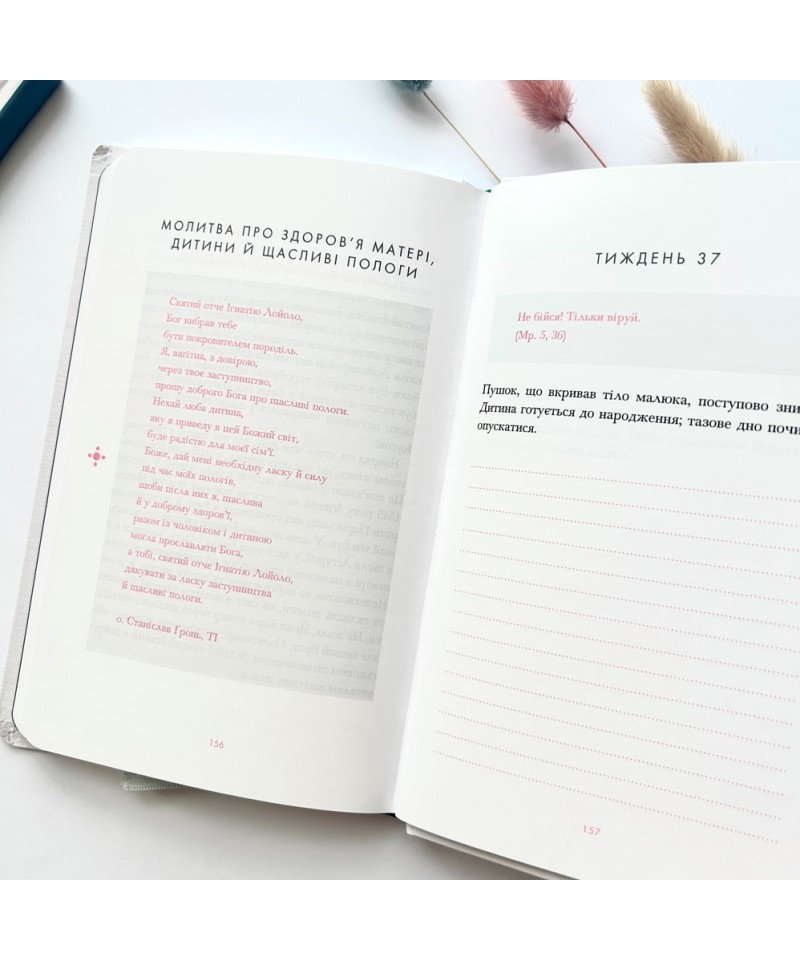 МОЛИТВА ПРО ЗДОРОВ’Я МАТЕРІ,
ДИТИНИ Й ЩАСЛИВІ ПОЛОГИ
Святий отче Ігнатію Лойоло,
Бог вибрав тебе
бути покровителем породіль.
Я, вагітна, з довірою,
через твоє заступництво,
прошу доброго Бога про щасливі пологи.
Нехай люба дитина,
яку я приведу в цей Божий світ,
буде радістю для моєї сім’ї.
Боже, дай мені необхідну ласку й силу
під час моїх пологів,
щоби після них я, щаслива
й у доброму здоров’ї,
разом із чоловіком і дитиною
могла прославляти Бога,
а тобі, святий отче Ігнатію Лойоло,
дякувати за ласку заступництва
й щасливі пологи.
о. Станіслав Ґрош, ТІ
156
ТИЖДЕНЬ 37
Не бійся! Тільки віруй.
(Мр. 5, 36)
Пушок, що вкривав тіло малюка, поступово зни
Дитина готується до народження; тазове дно почи
опускатися.
157